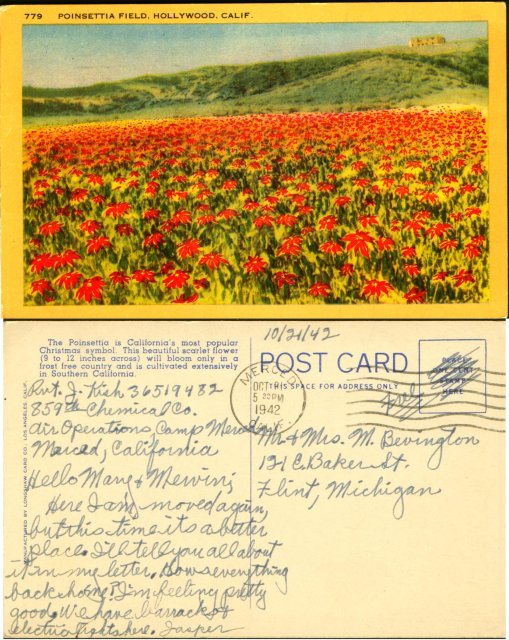 779 POINSETTIA FIELD, HOLLYWOOD, CALIF.
The Poinsettia is California's most popular
Christmas symbol. This beautiful scarlet flower
(9 to 12 inches across) will bloom only in a
frost free country and is cultivated extensively
in Southern California.
Pvt. J. Kish 36519482
859th Chemical Co.
Air Operations, Camp Merced
Merced, California
Hello Mary & Mervin;
Here I am, moved again,
but this time its a better
place. I'll tell you all about
it in my letter. Hows everything
back home? I'm feeling pretty
good. We have barracks &
electric lights here. Jasper
MANUFACTURED BY LONGSHAW CARD CO. LOS ANGELES, CALIF.
10/21/42
POST CARD
THIS SPACE FOR ADDRESS ONLY
MERCED
OCT
5 PM
1942
CALIF.
PLACE
ONE CENT
STAMP
HERE
Free
Mr. & Mrs. M. Bevington
121 E. Baker St.
Flint, Michigan